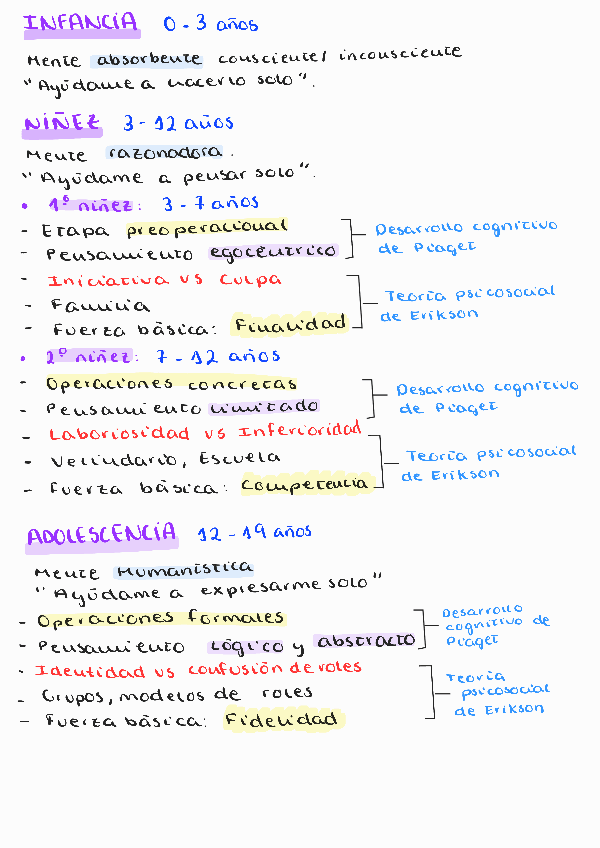 INFANCIA 0 - 3 años
Mente absorbente consciente/ inconsciente
"Ayúdame a hacerlo solo".
NIÑEZ 3 - 12 años
Mente razonadora.
"Ayúdame a pensar solo".
• 1º niñez: 3 - 7 años
- Etapa preoperacional
- Pensamiento egocéntrico
Desarrollo cognitivo
de Piaget
- Iniciativa vs Culpa
- Familia
- Fuerza básica: Finalidad
Teoría psicosocial
de Erikson
• 2º niñez: 7 - 12 años
- Operaciones concretas
- Pensamiento limitado
Desarrollo cognitivo
de Piaget
- Laboriosidad vs Inferioridad
- Vecindario, Escuela
- Fuerza básica: Competencia
Teoría psicosocial
de Erikson
ADOLESCENCIA 12 - 19 años
Mente Humanística
"Ayúdame a expresarme solo"
- Operaciones formales
- Pensamiento lógico y abstracto
Desarrollo
cognitivo de
Piaget
- Identidad vs confusión de roles
- Grupos, modelos de roles
- Fuerza básica: Fidelidad
Teoría
psicosocial
de Erikson